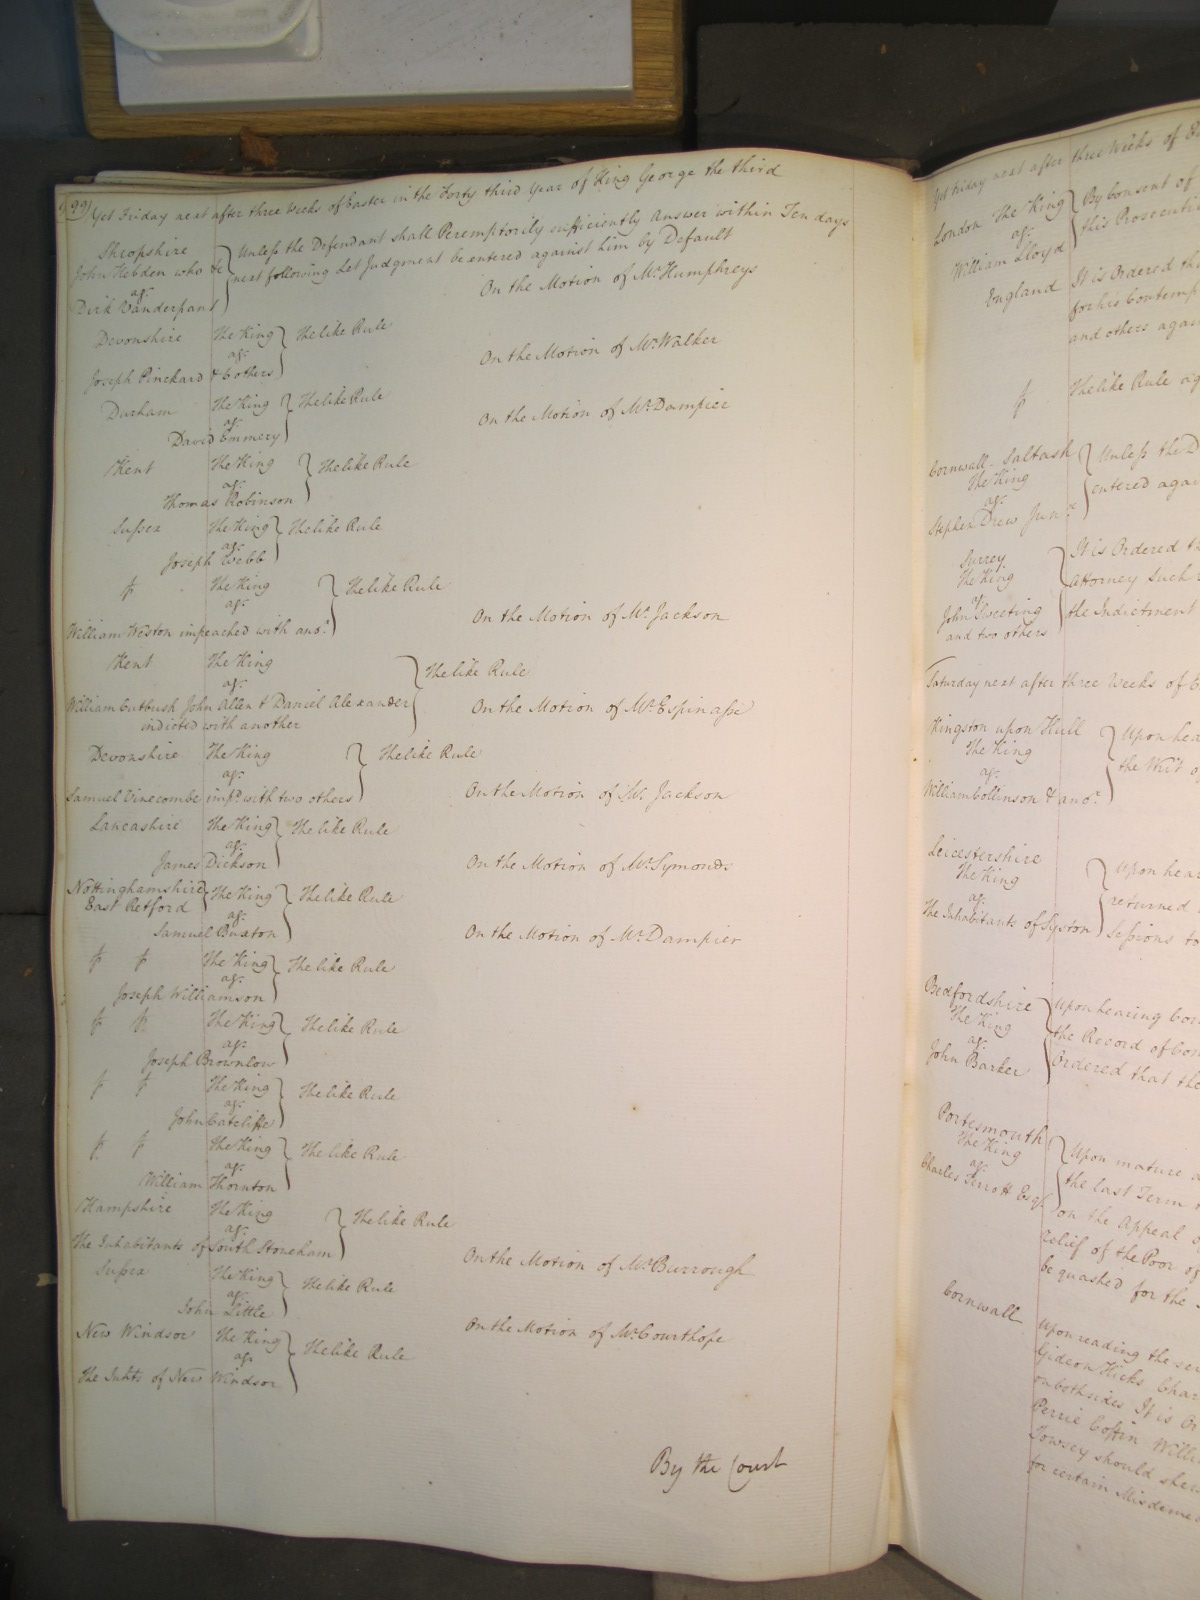 99) Yet Friday next after three Weeks of Easter in the Forty third Year of King George the third
Shropshire
John Hebden who &c
agt
Dirk Vanderpant
Unless the Defendant shall Peremptorily sufficiently Answer within Ten days
next following Let Judgment be entered against him by Default
On the Motion of Mr Humphreys
Devonshire The King
agt
Joseph Pinckard & 6 others
The like Rule
On the Motion of Mr Walker
Durham The King
agt
David Emmery
The like Rule
On the Motion of Mr Dampier
Kent The King
agt
Thomas Robinson
The like Rule
Sussex The King
agt
Joseph Webb
The like Rule
The King
agt
William Weston impeached with anor
The like Rule
On the Motion of Mr Jackson
Kent The King
agt
William Cutbush John Allen & Daniel Alexander
indicted with another
The like Rule
On the Motion of Mr Espinasse
Devonshire The King
agt
Samuel Vinecombe impd with two others
The like Rule
On the Motion of Mr Jackson
Lancashire The King
agt
James Dickson
The like Rule
On the Motion of Mr Symonds
Nottinghamshire
East Retford
The King
agt
Samuel Buxton
The like Rule
On the Motion of Mr Dampier
The King
agt
Joseph Williamson
The like Rule
The King
agt
Joseph Brownlow
The like Rule
The King
agt
John Catcliffe
The like Rule
The King
agt
William Thornton
The like Rule
Hampshire The King
agt
The Inhabitants of South Stoneham
The like Rule
On the Motion of Mr Burrough
Sussex The King
agt
John Little
The like Rule
On the Motion of Mr Courthope
New Windsor The King
agt
The Inhts of New Windsor
The like Rule
By the Court
Yet Friday next after three Weeks of
London The King
agt
William Lloyd
By Consent of
this Prosecuti
England It is Ordered th
for his Contemp
and others agai
The like Rule ag
Cornwall - Saltash
The King
agt
Stephen Drew Junr
Unless the D
entered agai
Surrey
The King
agt
John Sweeting
and two others
It is Ordered th
attorney such
the Indictment
Saturday next after three Weeks of
Kingston upon Hull
The King
agt
William Collinson & anor
Upon hea
the Writ o
Leicestershire
The King
agt
The Inhabitants of Syston
Upon hear
returned
Sessions to
Bedfordshire
The King
agt
John Barker
Upon hearing Cou
the Record of Con
Ordered that the
Portesmouth
The King
agt
Charles Terrott Esqr
Upon mature
the last Term
on the Appeal o
relief of the Poor of
be quashed for the
Cornwall
Upon reading the
Gideon Hicks Char
on both sides It is Or
Perrie Coffin Willi
Towsey should shew
for certain Misdeme